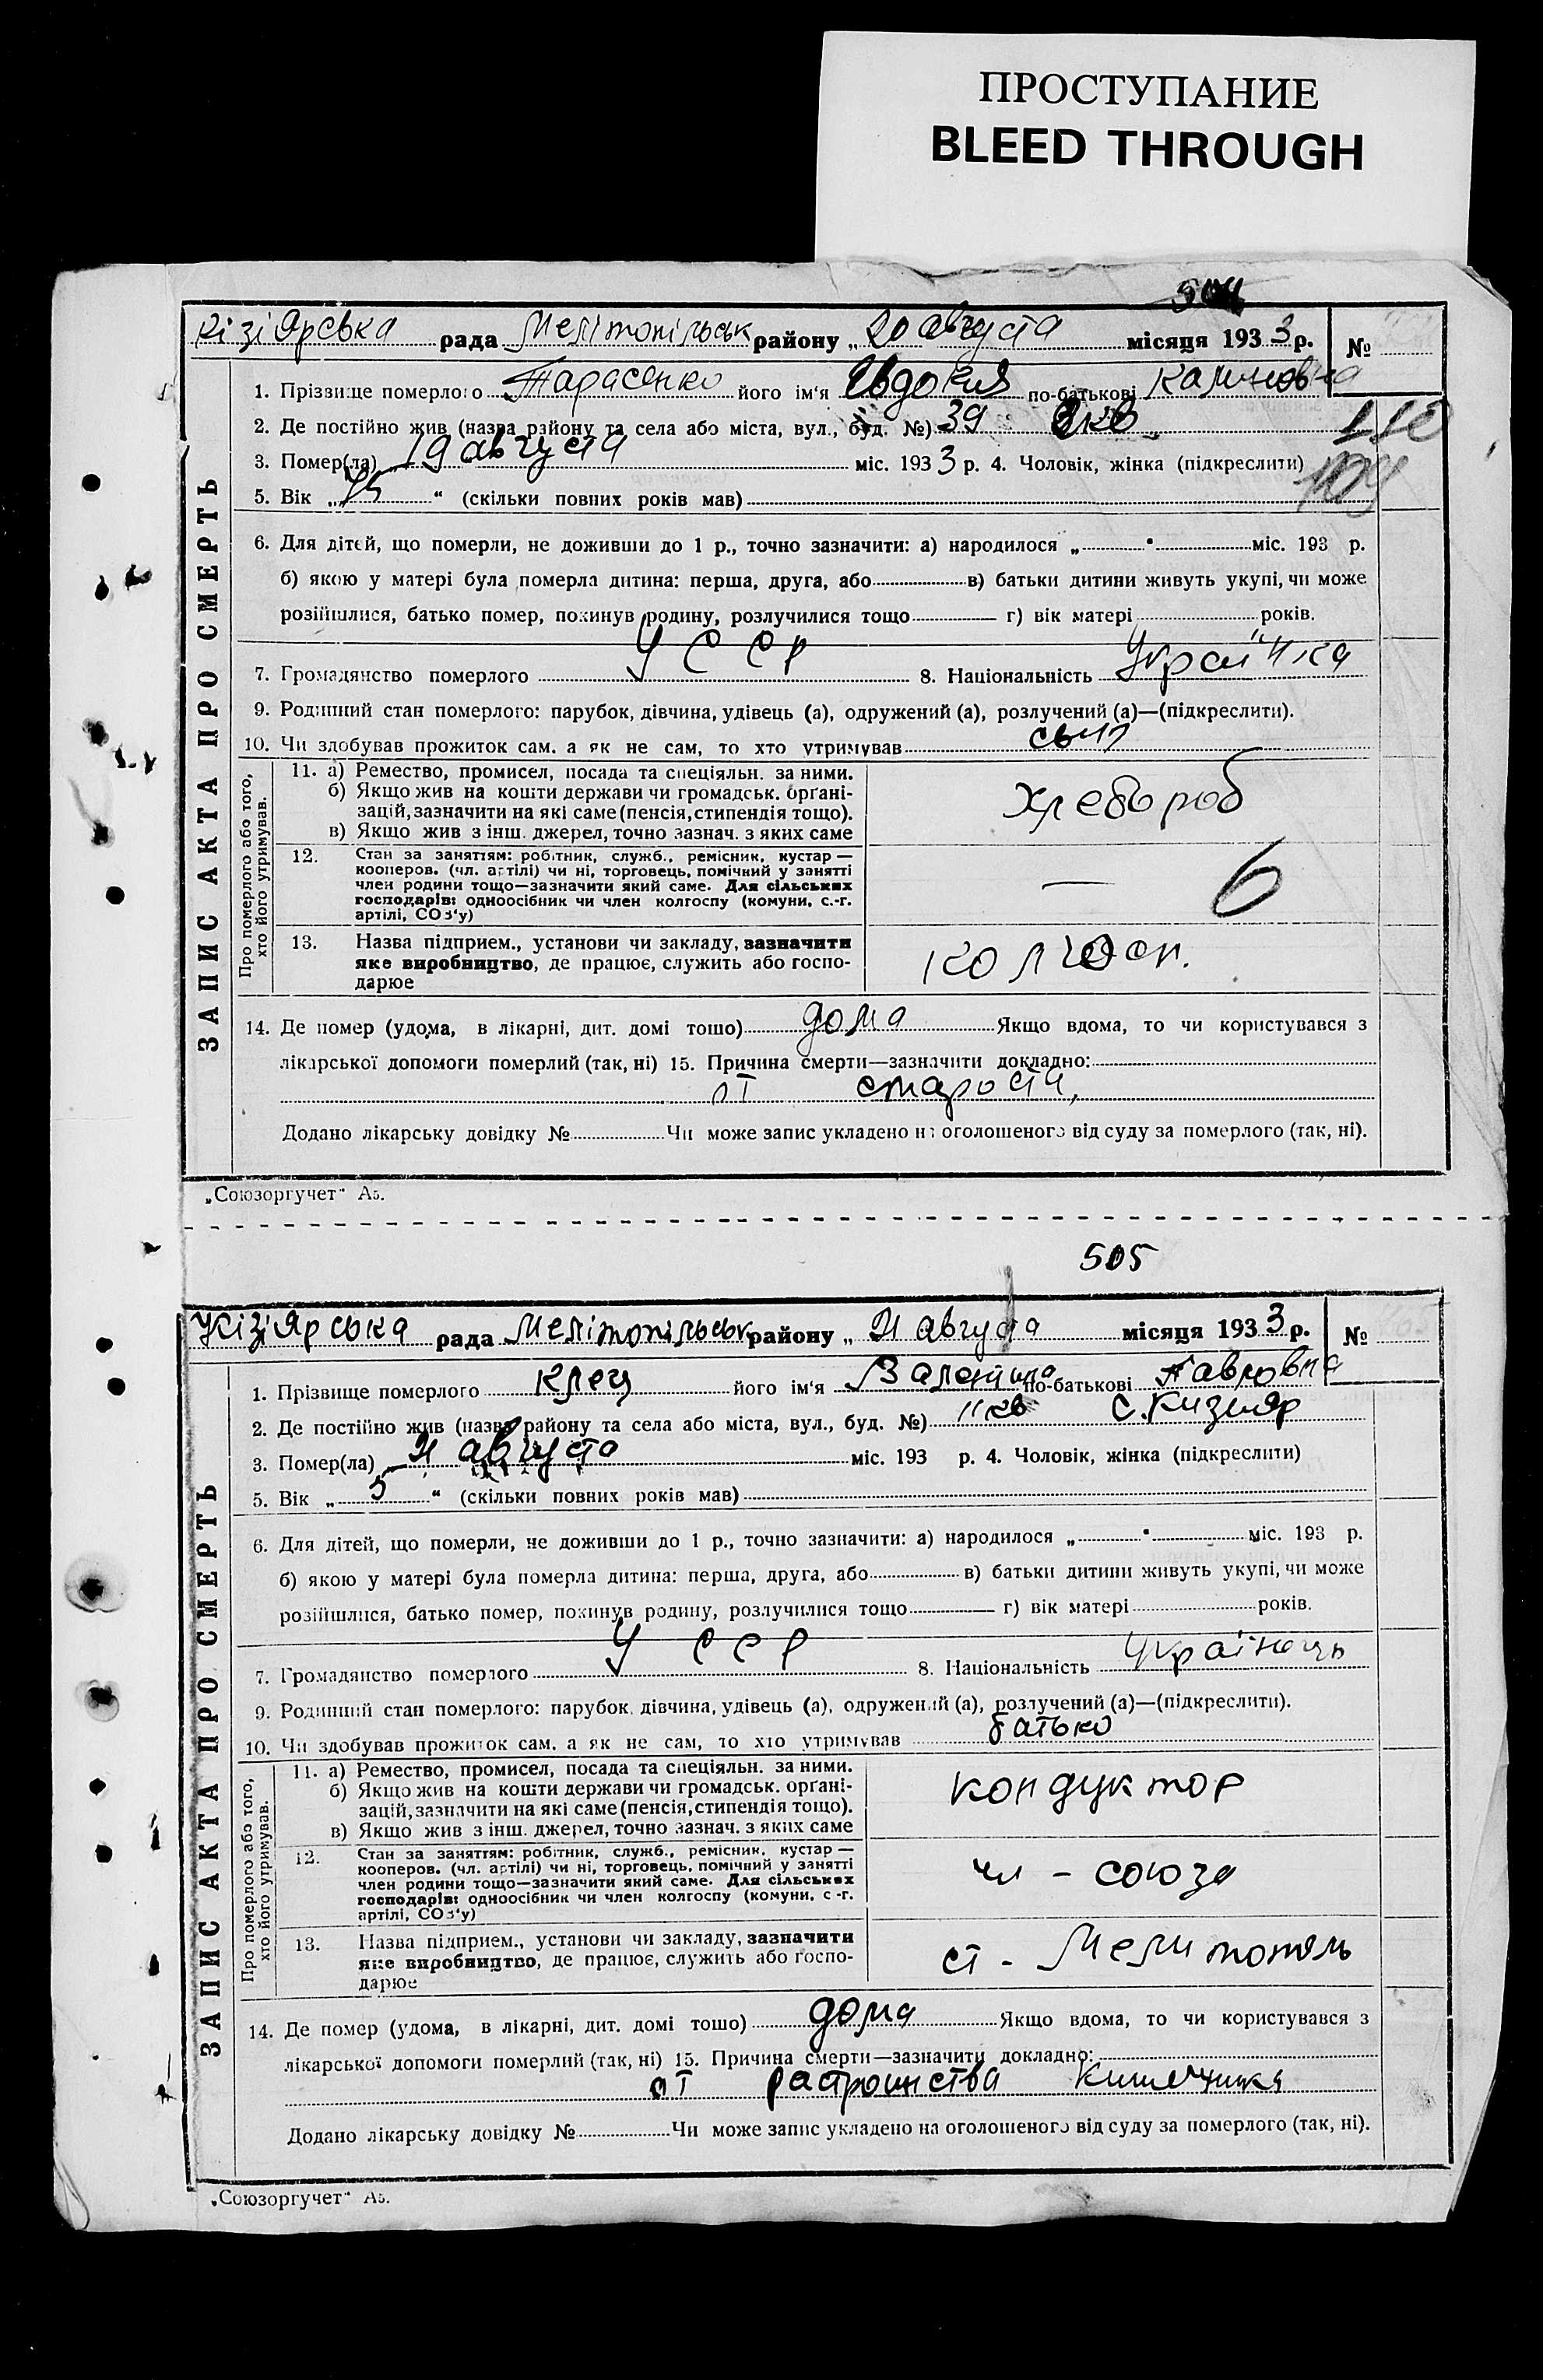 ПРОСТУПАНИЕ
BLEED THROUGH
504
Кізіярська рада Мелітопільськ району „ 20 августа місяця 1933 р. №
1. Прізвище померлого Тарасенко його ім'я Евдокия по-батькові
2. Де постійно жив (назва району та села або міста, вул., буд. №) 39
3. Помер(ла) 19 августа міс. 1933 р. 4. Чоловік, жінка (підкреслити)
5. Вік „ “ (скільки повних років мав)
6. Для дітей, що померли, не доживши до 1 р., точно зазначити: а) народилося „ “ міс. 193 р.
б) якою у матері була померла дитина: перша, друга, або в) батьки дитини живуть укупі, чи може
розійшлися, батько помер, покинув родину, розлучилися тощо г) вік матері років.
7. Громадянство померлого УССР 8. Національність Українка
9. Родинний стан померлого: парубок, дівчина, удівець (а), одружений (а), розлучений (а)—(підкреслити).
10. Чи здобував прожиток сам, а як не сам, то хто утримував сын
ЗАПИС АКТА ПРО СМЕРТЬ
Про померлого або того, хто його утримував.
11. а) Ремество, промисел, посада та спеціяльн. за ними.
б) Якщо жив на кошти держави чи громадськ. організацій, зазначити на які саме (пенсія, стипендія тощо).
в) Якщо жив з інш. джерел, точно зазнач. з яких саме
хлебороб
12. Стан за заняттям: робітник, служб., ремісник, кустар —
кооперов. (чл. артілі) чи ні, торговець, помічний у занятті
член родини тощо—зазначити який саме. Для сільських
господарів: одноосібник чи член колгоспу (комуни, с.-г.
артілі, СОЗ'у)
— 6
13. Назва підприєм., установи чи закладу, зазначити
яке виробництво, де працює, служить або госпо-
дарює
колгосп.
14. Де помер (удома, в лікарні, дит. домі тощо) дома Якщо вдома, то чи користувався з
лікарської допомоги померлий (так, ні) 15. Причина смерти—зазначити докладно:
от старости,
Додано лікарську довідку № Чи може запис укладено на оголошеного від суду за померлого (так, ні).
„Союзоргучет“ А5.
505
Кізіярська рада Мелітопільськ району „ 21 августа місяця 1933 р. №
1. Прізвище померлого Клец його ім'я Валентина по-батькові Павловна
2. Де постійно жив (назва району та села або міста, вул., буд. №) 11 кв с. Кизияр
3. Помер(ла) 21 августа міс. 193 р. 4. Чоловік, жінка (підкреслити)
5. Вік „ 5 “ (скільки повних років мав)
6. Для дітей, що померли, не доживши до 1 р., точно зазначити: а) народилося „ “ міс. 193 р.
б) якою у матері була померла дитина: перша, друга, або в) батьки дитини живуть укупі, чи може
розійшлися, батько помер, покинув родину, розлучилися тощо г) вік матері років.
7. Громадянство померлого УССР 8. Національність Українець
9. Родинний стан померлого: парубок, дівчина, удівець (а), одружений (а), розлучений (а)—(підкреслити).
10. Чи здобував прожиток сам, а як не сам, то хто утримував батько
ЗАПИС АКТА ПРО СМЕРТЬ
Про померлого або того, хто його утримував.
11. а) Ремество, промисел, посада та спеціяльн. за ними.
б) Якщо жив на кошти держави чи громадськ. органі-
зацій, зазначити на які саме (пенсія, стипендія тощо).
в) Якщо жив з інш. джерел, точно зазнач. з яких саме
кондуктор
12. Стан за заняттям: робітник, служб., ремісник, кустар —
кооперов. (чл. артілі) чи ні, торговець, помічний у занятті
член родини тощо—зазначити який саме. Для сільських
господарів: одноосібник чи член колгоспу (комуни, с.-г.
артілі, СОЗ'у)
чл - союза
13. Назва підприєм., установи чи закладу, зазначити
яке виробництво, де працює, служить або госпо-
дарює
ст - Мелитополь
14. Де помер (удома, в лікарні, дит. домі тощо) дома Якщо вдома, то чи користувався з
лікарської допомоги померлий (так, ні) 15. Причина смерти—зазначити докладно:
от растроинства кишечника
Додано лікарську довідку № Чи може запис укладено на оголошеного від суду за померлого (так, ні).
„Союзоргучет“ А5.